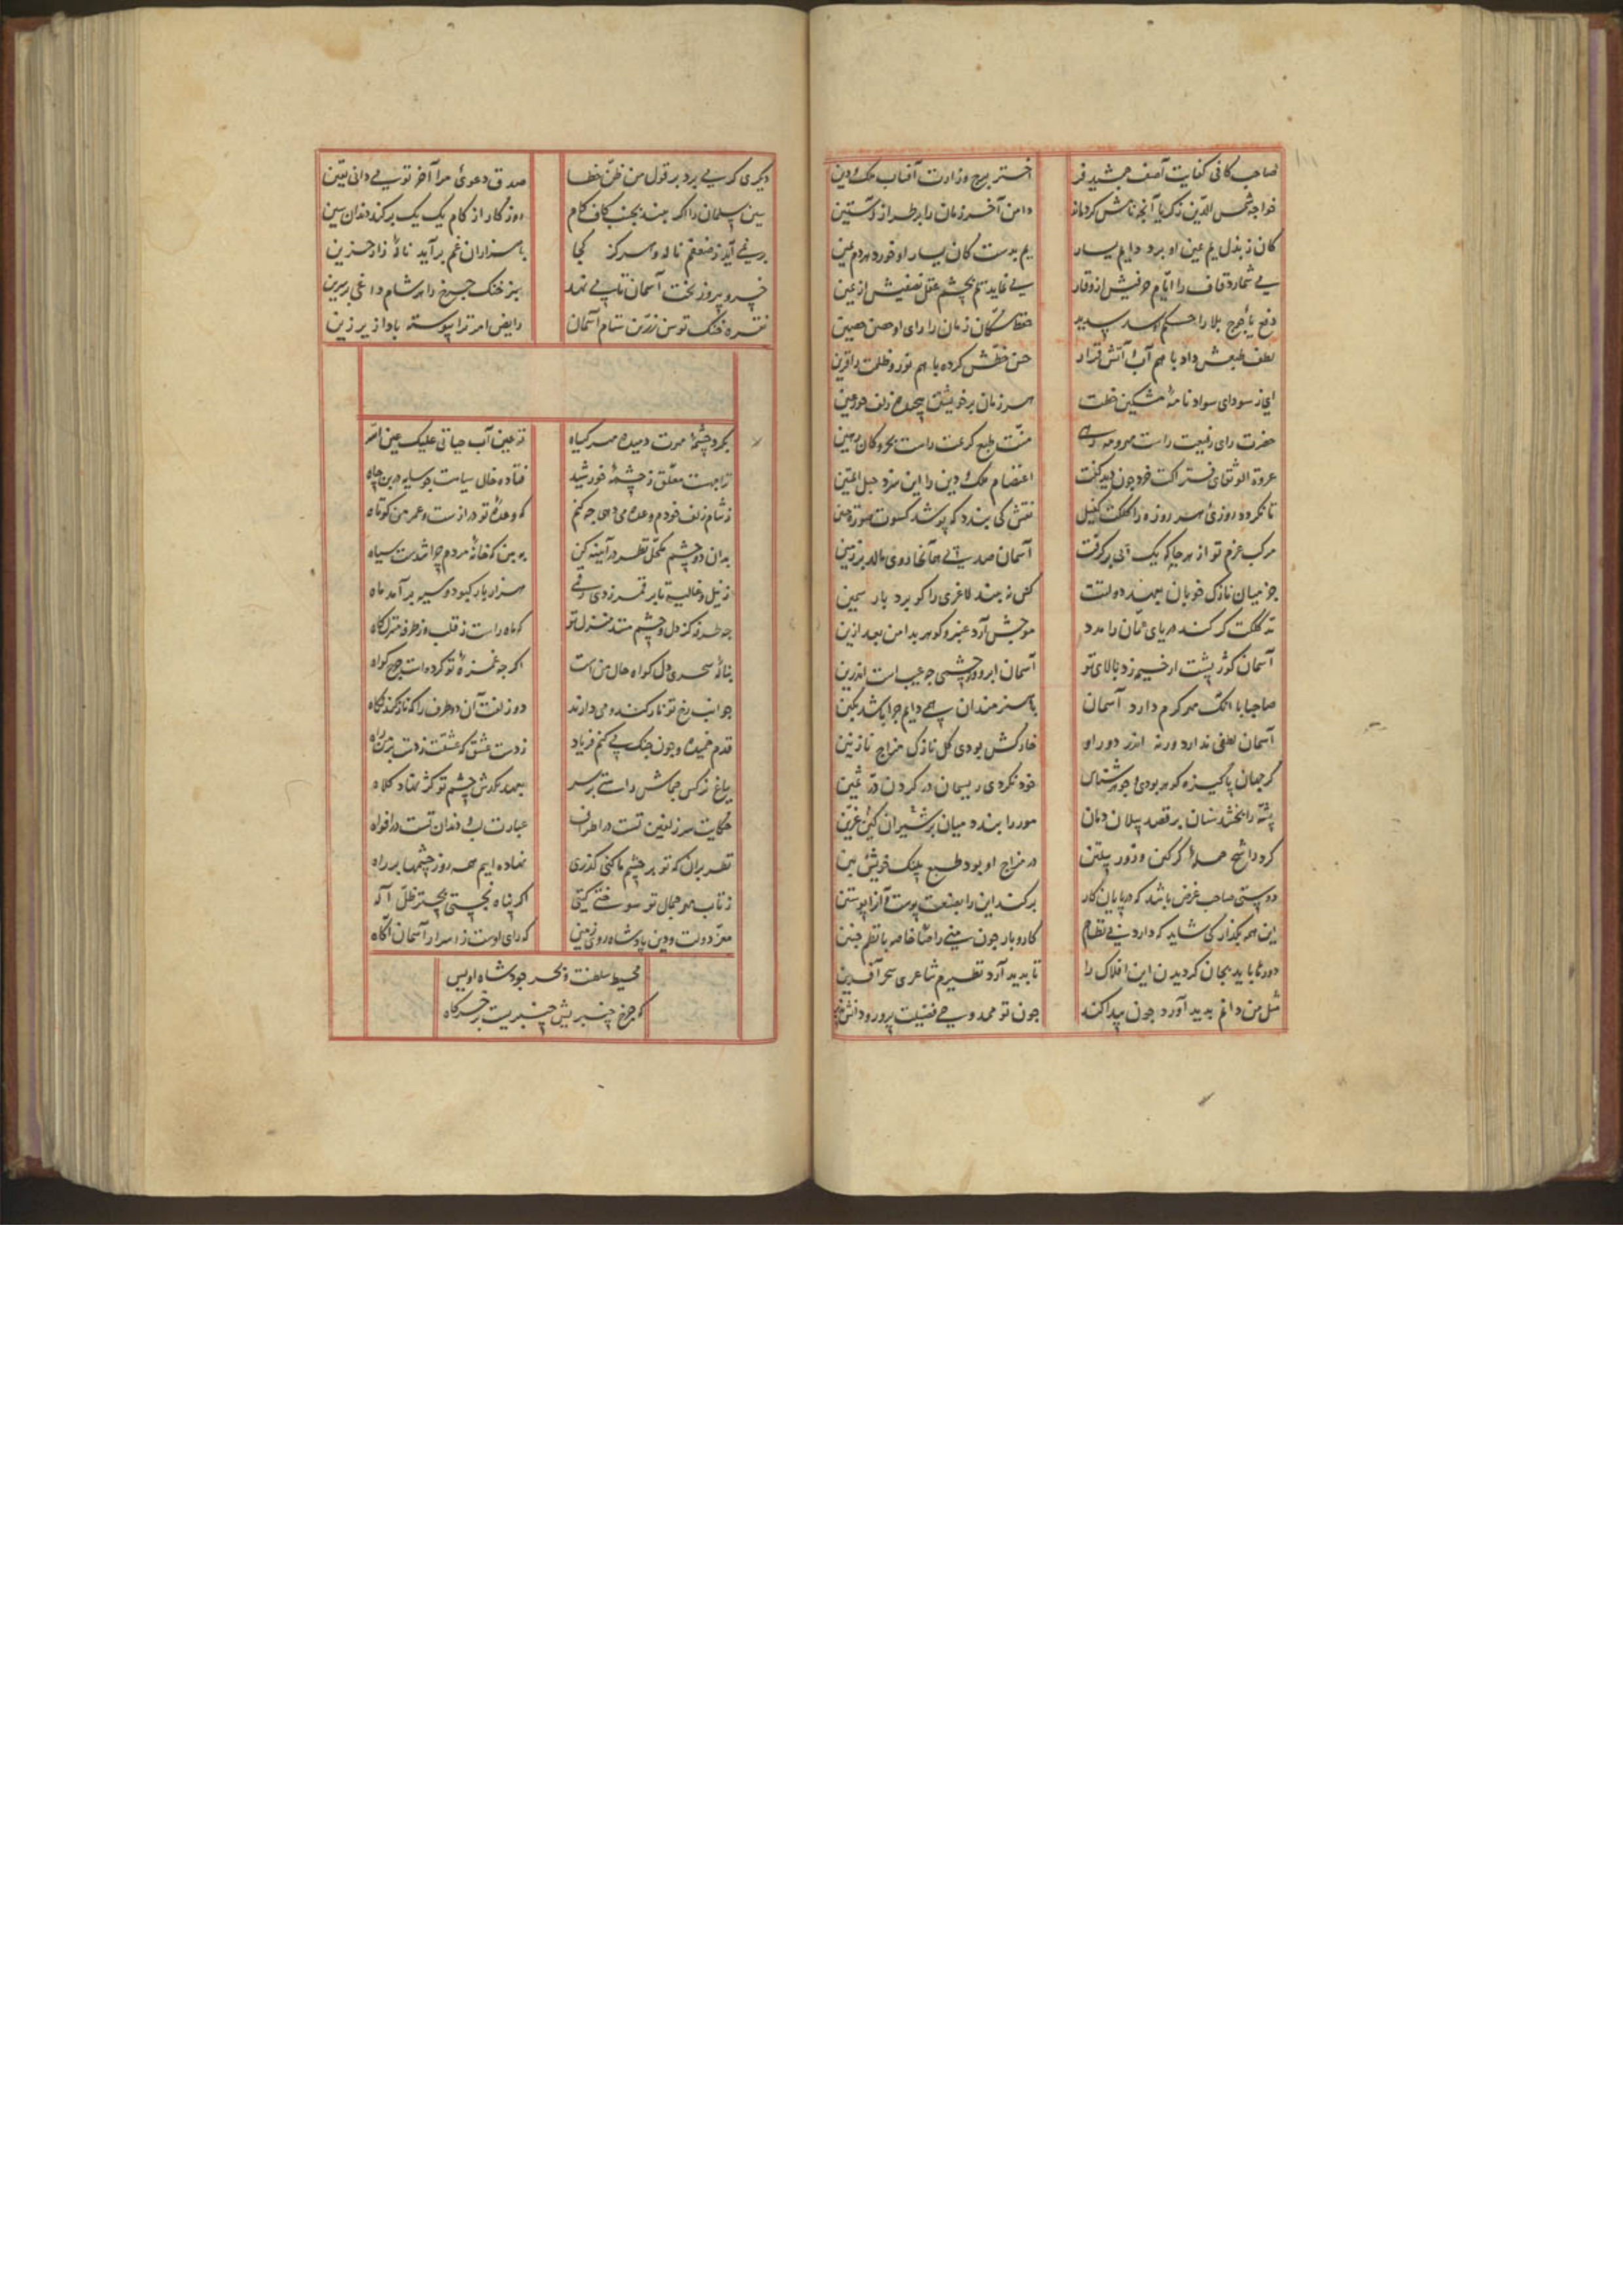 صاحب کافی کفایت آصف جمشید فر اختر برج وزارت آفتاب ملک و دین
خواجه شمس الدین زکریا آنجه ناش کردهاند دامن آخر زمان را بر طراز آستین
کان ز بذل یم عین او برد دایم یسار یم بدست کان یسار او خورد هردم یمین
بی شمارد قاف را ایام حرفیش از وقار بی نماید یم بچشم عقل نصفیش از عین
دفع یأجوج بلا را حکم او سد سدید حفظ سکان زمان را رای او حصن حصین
لطف طبعش داد با هم آب و آتش قرار حسن خطش کرده با هم نور و ظلمت را قرین
ای از سودای سواد نامهٔ مشکین خطت هر زمان بر خویشتن پیچد زلف حور عین
حضرت رای رفیعت راست مهر و مه رهی منت طبع کریمت راست بحر و کان رهین
عروة الوثقای فتراکت خرد چون دید گفت اعتصام ملک و دین را این سزد حبل المتین
تا نکردد روزیٔ هر روزه را کلکت کفیل نقش کی بندد که پوشد کسوت صورت جنین
مرکب عزم تو از هر جا که یک پی برگرفت آسمان صد پی همانجا روی مالد بر زمین
جز میان نازک خوبان بعهد دولتت کس نه بیند لاغری را کو برد بار سمین
نم کلکت گر کند دریای عمان را مدد موجش آرد عنبر و کوهر بدامن بعد ازین
آسمان کوژ پشت ار خیمه زد بالای تو آسمان ابرو و چشمی جه عیب است اندرین
صاحبا با آنکه مهر کرم دارد آسمان با هنرمندان همی دایم جرا باشد بکین
آسمان لطفی ندارد ورنه اندر دور او خارکش بودی کل نازک مزاج نازنین
گر جهان پاکیزه کوهر بودی و جوهرشناس خود نکردی ریسمان در کردن در ثمین
پشه را بخشد سنان بر قصد پیلان دمان مور را بندد میان بر شیران کین عرین
کرد را شح حملهٔ کرکین و زور پیلتن در مزاج او بود طبع پلنک خویش بین
دوستی صاحب غرض باشد که در پایان کار برکند این را بصنعت پوست و آنرا پوستین
این همه بگذار کی شاید که دارد بی نظام کار و بار جون منی را خاصه با نظم جنین
دورها باید بجان کردیدن این افلاک را تا بدید آرد نظیرم شاعری سحر آفرین
مثل من دانم بدید آورد جون پیدا کند جون تو ممدوحی فضیلت پرور و دانش
دیکری کر پی برد بر قول من ظن خطا صدق دعویٔ مرا آخر تو می دانی یقین
سین سلمان را اگر بیند بجنب کاف کلام روزکار از کام یک یک برکند دندان سین
بر نمی آید ز ضعفم ناله و هر کز کجا با هزاران غم برآید نالهٔ زار حزین
خسرو پیروز بخت آسمان تا می نهد سبز خنک جرخ را هر شام داغی بر سرین
نقره خنک توسن زرین ستام آسمان رایض امر ترا پیوسته باد از زیر زین
بگرد چشمهٔ مهرت دمیده مهر گیاه ز عین آب حیاتی علیک عین الله
ترا بهت معلق ز چشمهٔ خورشید فتاده خال سیاهت جو سایه در بن چاه
ز شام زلف خودم وعده می دهی جه کنم که وعدهٔ تو درازست و عمر من کوتاه
بدان دو چشم مکحل نظر در آینه کن به بین که خانهٔ مردم جرا شدست سیاه
ز نیل و غالیه تا بر قمر زدی رقمی هزار بار کبود و سیه بر آمد ماه
جه طرفه کز دل و چشم منند منزل تو که ماه راست ز قلب و ز طرفه منزلگاه
بنالهٔ سحری دل کواه حال منست اگر جه غمزهٔ تو کرده است جرح کواه
جوانب رخ تو نازکند و می دارند دو زلفت آن دو طرف را که نازکند نگاه
قدم خمیده و چون جنک می کنم فریاد ز دست عشق که عشقت زدست بر من راه
بباغ نرکس جماش داشتی بر سر بعهد نرکس چشم تو کژ نهاد کلاه
حکایت سر زلفین تست در اطراف عبارت لب و دندان تست در افواه
نظر بران که تو بر چشم ما کنی گذری نهاده ایم همه روز چشمها بر راه
ز تاب مهر جمال تو سوختی کیتی اگر پناه نجستی بچتر ظل اله
معز دولت و دین پادشاه روی زمین که رای اوست ز اسرار آسمان آگاه
محیط سلطنت و بحر جود شاه اویس
که جرخ چنبریش چنبریست بر خرگاه